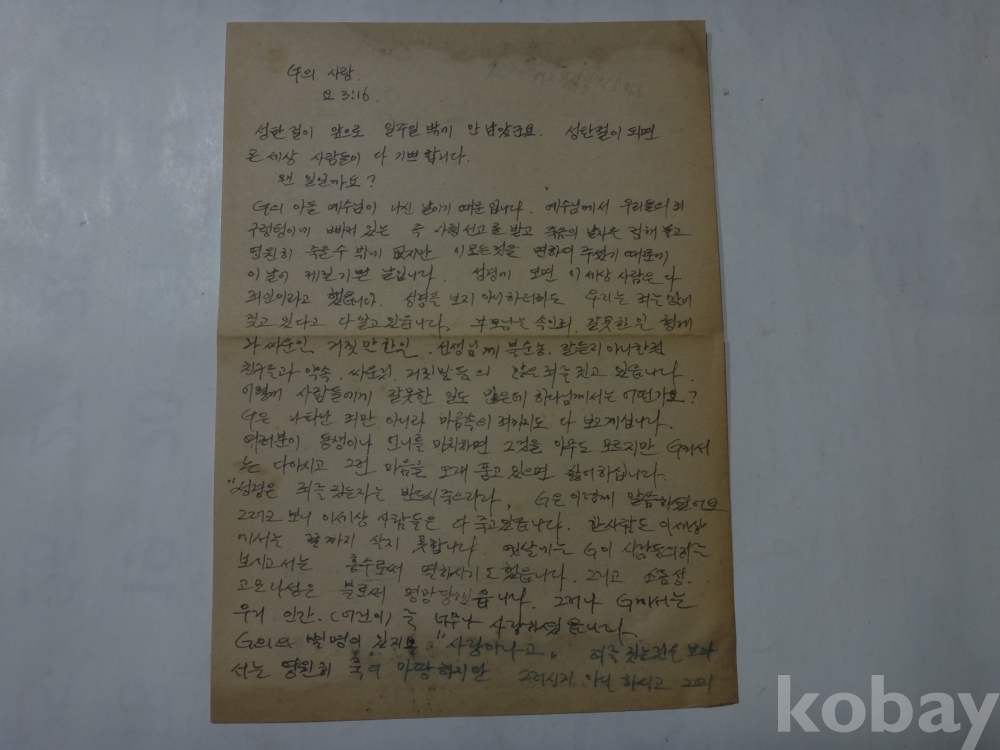 G의 사랑.
요 3:16.
성탄절이 앞으로 일주일 밖에 안 남았군요. 성탄절이 되면
온 세상 사람들이 다 기뻐합니다.
왠 일일까요?
G의 아들 예수님이 나신 날이기 때문입니다. 예수님께서 우리들의 죄
구렁텅이에 빠져 있는 즉 사형선고를 받고 죽음의 날자은 정해 놓고
영원히 죽을수 밖에 없지만 이 모든것을 면하여 주셨기 때문에
이 날이 제일 기쁜 날입니다. 성경에 보면 이 세상 사람은 다
죄인이라고 했읍니다. 성경을 보지 아니하더라도 우리는 죄는 많이
짖고 있다고 다 알고 있읍니다. 부모님을 속인죄, 잘못한 일 형제
와 싸운일 거짓말 한일. 선생님께 불순종. 말듣지 아니한것
친구들과 약속. 싸운것. 거짓말 등의 많은 죄를 짓고 있읍니다.
이렇게 사람들에게 잘못한 일도 많은데 하나님께서는 어떤가요?
G은 나타난 죄만 아니라 마음속의 죄까지도 다 보고계십니다.
여러분이 동생이나 언니를 미워하면 그것을 아무도 모르지만 G께서
는 다아시고 그런 마음을 오래 품고 있으면 싫어하십니다.
"성경은 죄를 짓는자는 반드시 죽으리라, G은 이렇게 말씀하셨어요
그러고 보니 이세상 사람들은 다 죽고있읍니다. 한사람도 이세상
에서는 끝까지 살지 못합니다. 옛날에는 G이 사람들의 죄를
보시고서는 홍수로써 멸하시기도 했읍니다. 그리고 소돔성.
고모라성은 불로써 멸망당했읍니다. 그러나 G께서는
우리 인간. 를 너무나 사랑하셨읍니다.
G의 "사랑이라고. 죄를 짓는것을 보아
서는 영원히 죽어 마땅하지만 그러시지 아니 하시고 그의
kobay